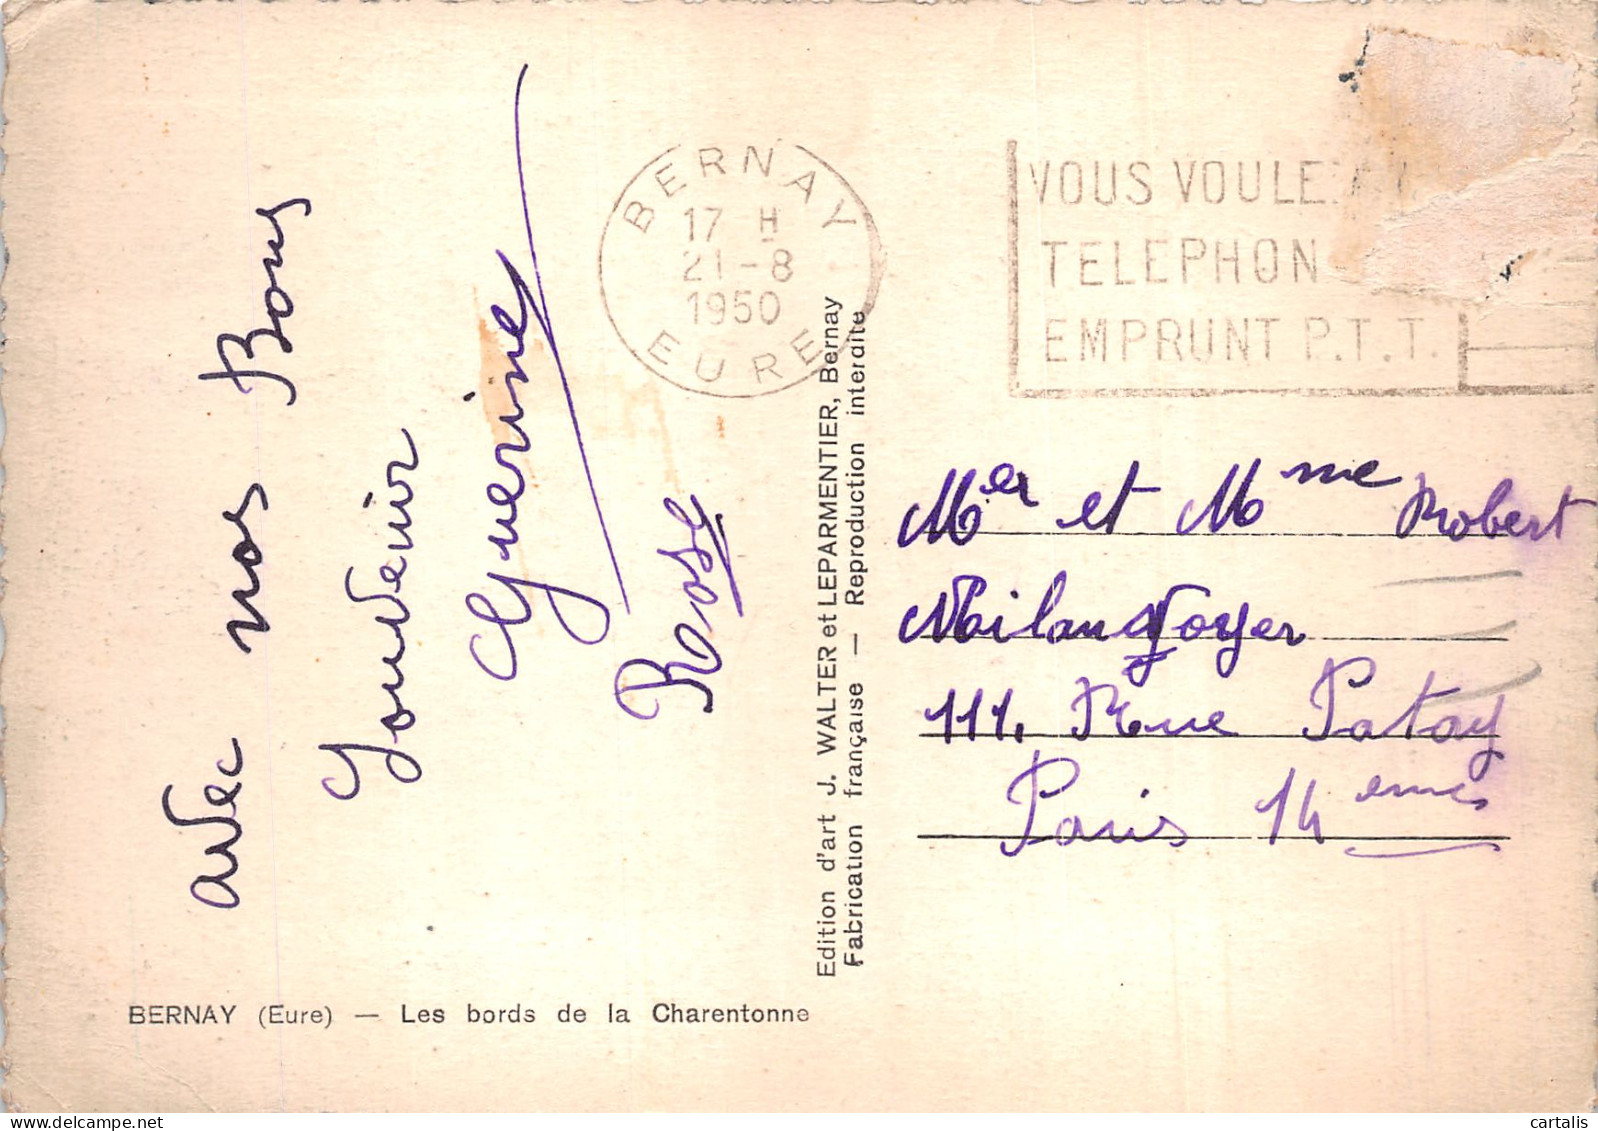 avec nos Bons
Souvenir
Guerines
Rose
BERNAY
17 H
21-8
1950
EURE
VOUS VOULE
TELEPHON
EMPRUNT P.T.T.
Edition d'art J. WALTER et LEPARMENTIER, Bernay
Fabrication française — Reproduction interdite
Mer et Mme Robert
111. Rue Patay
Paris 14emes
BERNAY (Eure) — Les bords de la Charentonne
cartalis